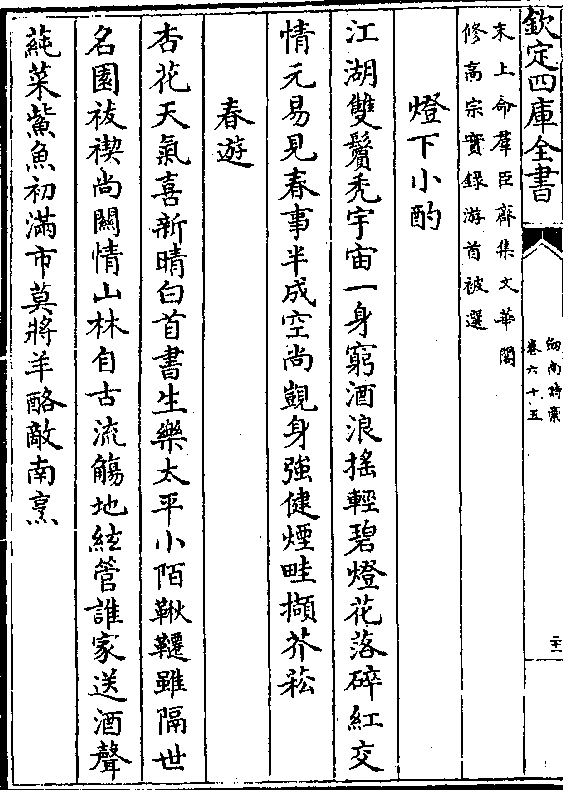 欽定四庫全書
劒南詩藁
卷六十五
二十一
末上命羣臣齊集文華閣
修高宗寳錄游首被選
燈下小酌
江湖雙鬢秃宇宙一身窮酒浪搖輕碧燈花落碎紅交
情元易見春事半成空尚覬身強健煙畦擷芥菘
春遊
杏花天氣喜新晴白首書生樂太平小陌鞦韆雖隔世
名園祓禊尚闗情山林自古流觴地絃管誰家送酒聲
蒓菜鮆魚初滿市莫將羊酪敵南烹